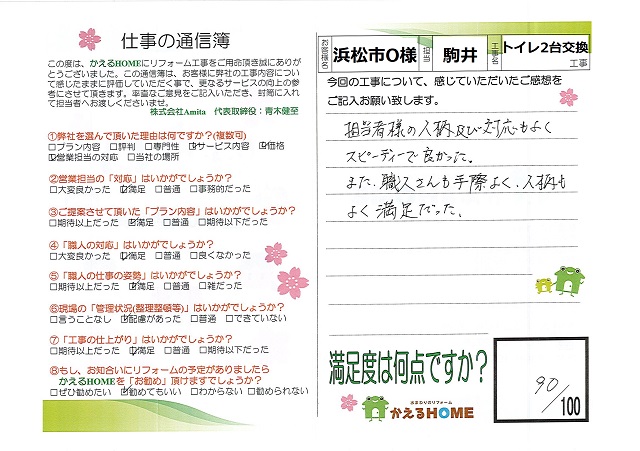 仕事の通信簿
この度は、かえるHOMEにリフォーム工事をご用命頂き誠にありが
とうございました。この通信簿は、お客様に弊社の工事内容につい
て感じたままに評価していただく事で、更なるサービスの向上の参
考にさせて頂きます。率直なご意見をご記入いただき、封筒に入れ
て担当者へお渡しくださいませ。
株式会社Amita 代表取締役：青木健至
①弊社を選んで頂いた理由は何ですか？(複数可)
□プラン内容 □評判 □専門性 ☑サービス内容 ☑価格
☑営業担当の対応 □当社の場所
②営業担当の「対応」はいかがでしょうか？
□大変良かった ☑満足 □普通 □事務的だった
③ご提案させて頂いた「プラン内容」はいかがでしょうか？
□期待以上だった ☑満足 □普通 □期待以下だった
④「職人の対応」はいかがでしょうか？
□大変良かった ☑満足 □普通 □良くなかった
⑤「職人の仕事の姿勢」はいかがでしょうか？
□期待以上だった ☑満足 □普通 □雑だった
⑥現場の「管理状況(整理整頓等)」はいかがでしょうか？
□言うことなし ☑配慮があった □普通 □できていない
⑦「工事の仕上がり」はいかがでしょうか？
□期待以上だった ☑満足 □普通 □期待以下だった
⑧もし、お知合いにリフォームの予定がありましたら
かえるHOMEを「お勧め」頂けますでしょうか？
□ぜひ勧めたい ☑勧めてもいい □わからない □勧められない
お客様名 浜松市O様 担当 駒井 工事名 トイレ2台交換 工事
今回の工事について、感じていただいたご感想を
ご記入お願い致します。
担当者様の人柄及び対応もよく
スピーディーで良かった。
また、職人さんも手際よく、人柄も
よく満足だった。
満足度は何点ですか？
90/100
水まわりのリフォーム
かえるHOME